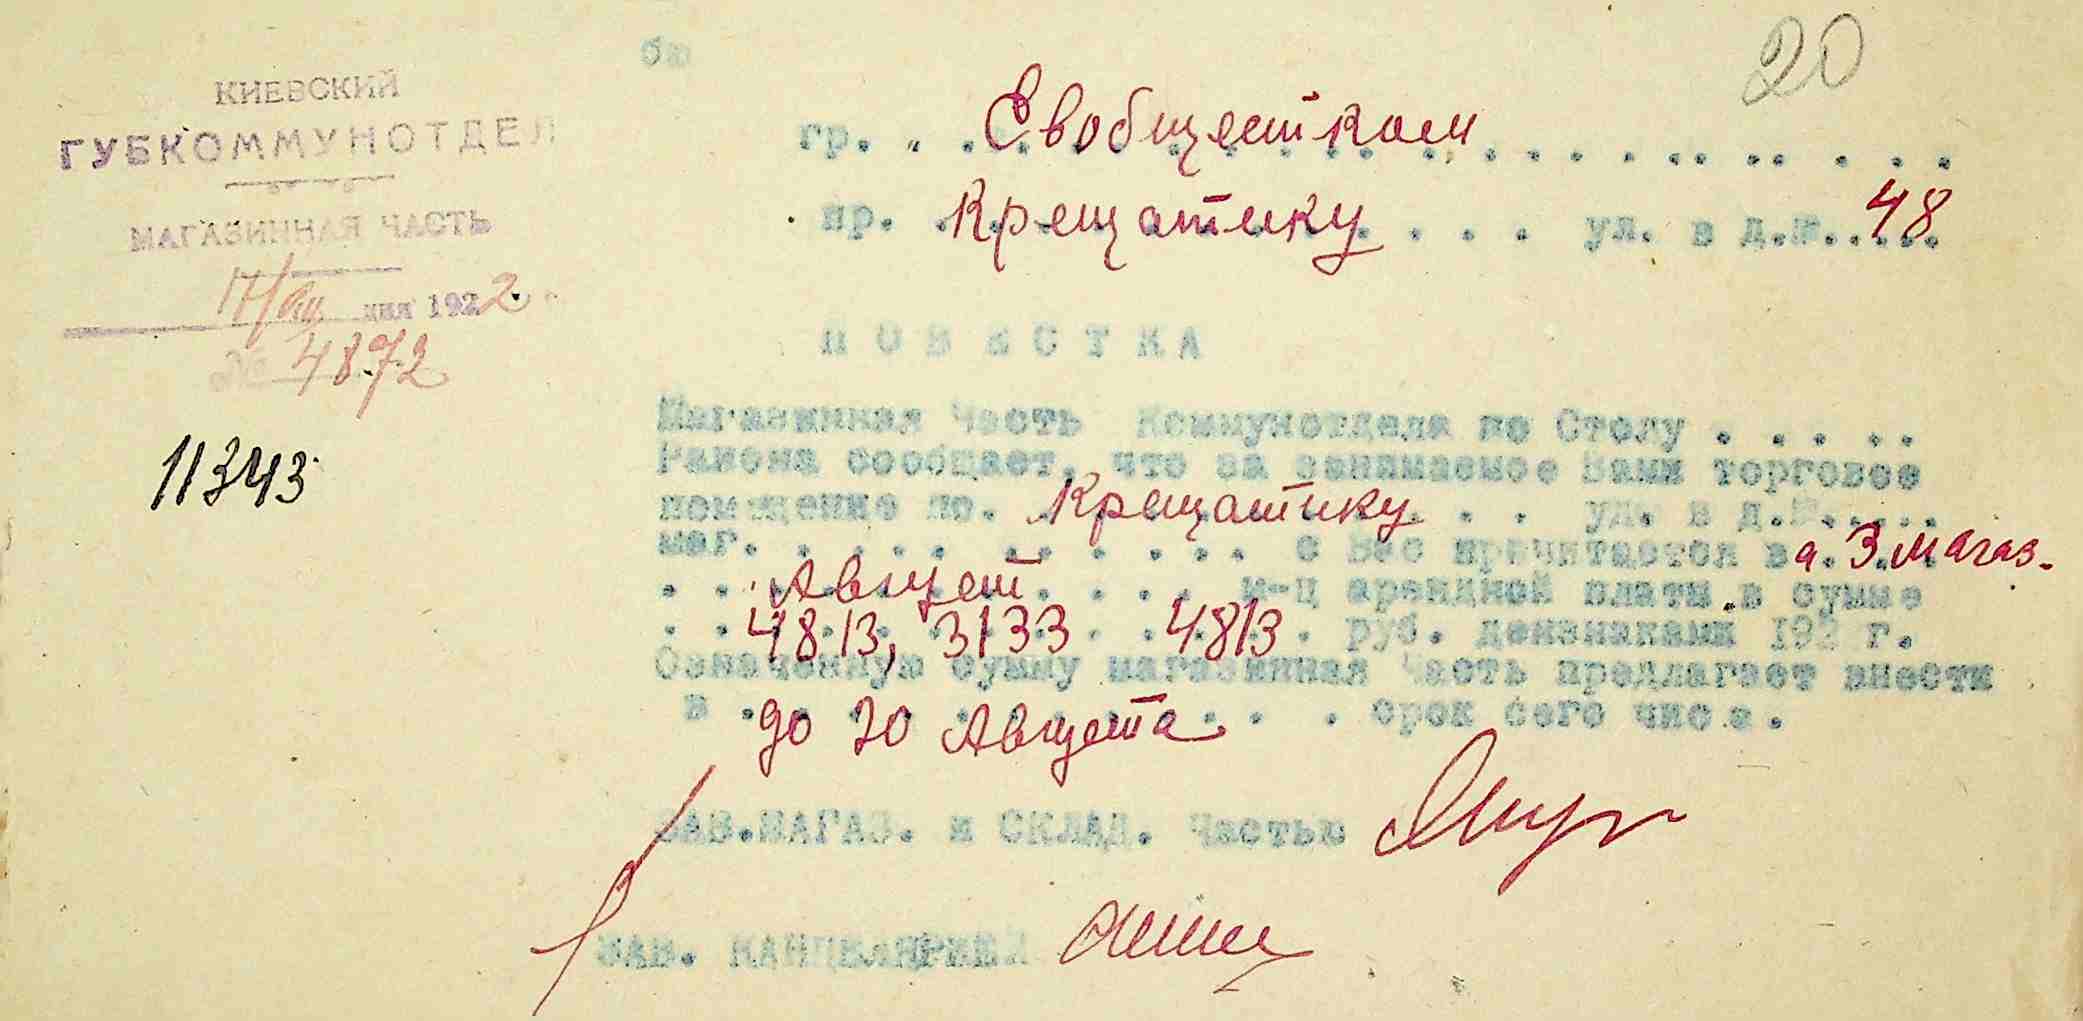 20
КИЕВСКИЙ
ГУБКОММУНОТДЕЛ
МАГАЗИННАЯ ЧАСТЬ
17/ дня 1922
№ 4872
11343
гр. Евобщестком
пр. Крещатику ул. в д.№ 48
ПОВЕСТКА
Магазинная Часть Коммунотдела по Столу . . . . .
Района сообщает, что за занимаемое Вами торговое
помещение по. Крещатику . . ул. в д.№.....
маг. . . . . . . . . . . с Вас причитается за 3 магаз.
Август м-ц арендной платы в сумме
4813, 3133 4813 руб. дензнаками 192 г.
Означенную сумму магазинная Часть предлагает внести
в до 20 Августа срок сего числа.
ЗАВ.МАГАЗ. и СКЛАД. Частью
ЗАВ. КАНЦЕЛЯРИЕЙ